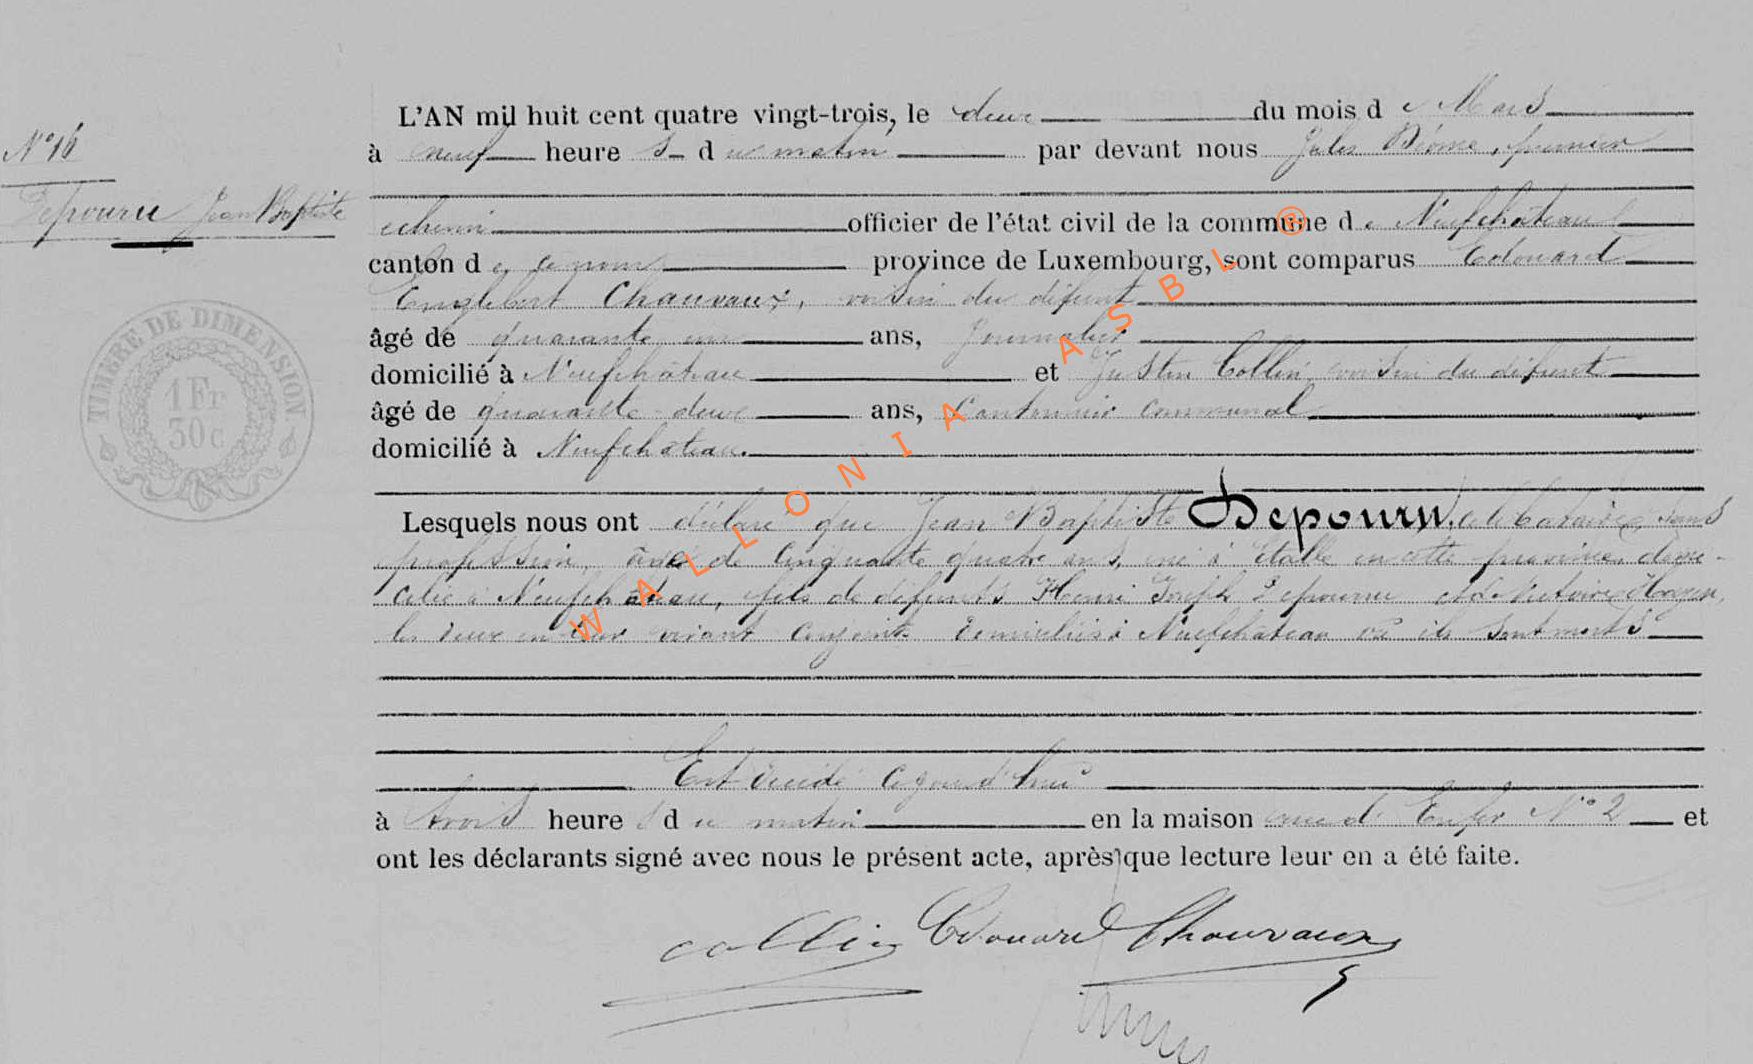 L'AN mil huit cent quatre vingt-trois, le deux du mois d e Mars
N° 16
à neuf heure s d u matin par devant nous Jules premier
Depouru Jean Baptiste
echevin officier de l'état civil de la commune d e Neufchâteau
canton d e ce nom province de Luxembourg, sont comparus Edouard
Englebert Chauvaux, voisin du défunt
âgé de quarante un ans, Journalier
domicilié à Neufchâteau et Justin Collin voisin du défunt
âgé de quarante deux ans, Cantonnier communal
domicilié à Neufchâteau.
Lesquels nous ont déclaré que Jean Baptiste Depouru, célibataire, sans
profession, âgé de cinquante quatre ans, né à Etalle en cette province, domi-
cilié à Neufchâteau, fils de défunts Henri Joseph Depouru et de Victoire
les deux en leur vivant conjoints domiciliés à Neufchâteau où ils sont morts
Est décédé cejourd'hui
à trois heure s d u matin en la maison rue d'Enfer N° 2 et
ont les déclarants signé avec nous le présent acte, après que lecture leur en a été faite.
collin Edouard Chauvaux
TIMBRE DE DIMENSION
1 Fr
30 c
WALLONIA ASBL ®